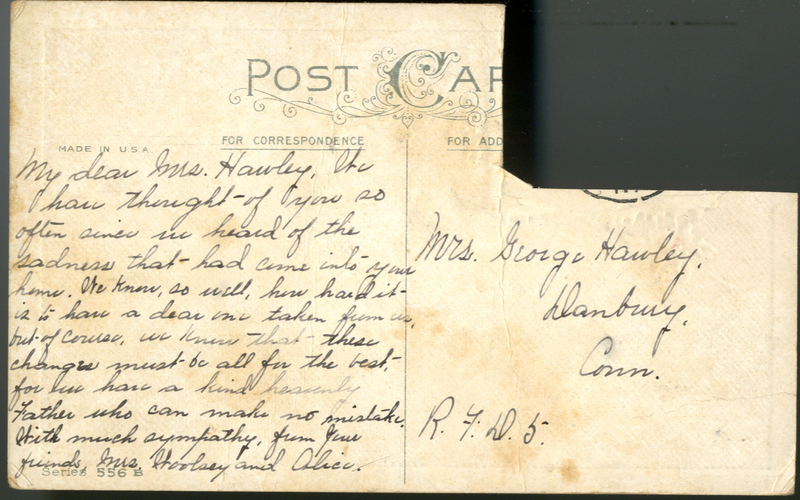 POST CAR
MADE IN U.S.A.
FOR CORRESPONDENCE
FOR ADD
My dear Mrs. Hawley, We
have thought of you so
often since we heard of the
sadness that had come into your
home. We know, so well, how hard it
is to have a dear one taken from us,
but of course, we know that these
changes must be all for the best,
for we have a kind heavenly
Father who can make no mistake.
With much sympathy, from your
friends, Mrs. Woolsey and Alice.
Series 556 B
Mrs. George Hawley,
Danbury,
Conn.
R. F. D. 5.